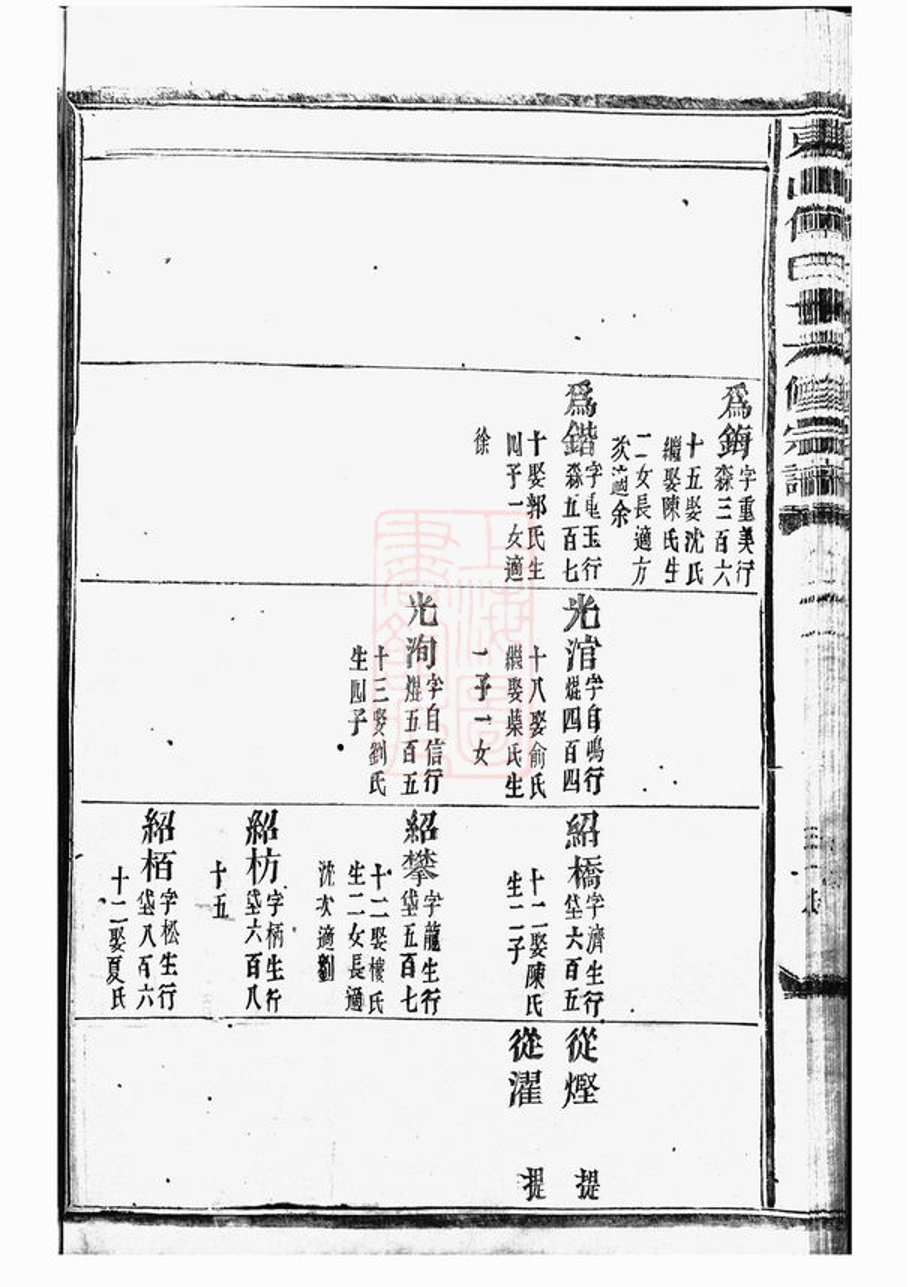 爲鋂
字重美行
森三百六
十五娶沈氏
繼娶陳氏生
二女長適方
次適余
爲鍇
字電玉行
森五百七
十娶郭氏生
四子一女適
徐
光涫
字自鳴行
焜四百四
十八娶俞氏
繼娶葉氏生
一子一女
光洵
字自信行
焜五百五
十三娶劉氏
生四子
紹橋
字濟生行
垡六百五
十二娶陳氏
生二子
紹攀
字龍生行
垡五百七
十二娶樓氏
生二女長適
沈次適劉
紹枋
字柄生行
垡六百八
十五
紹栢
字松生行
垡八百六
十二娶夏氏
從煙 提
從濯 提
上海圖
書館藏